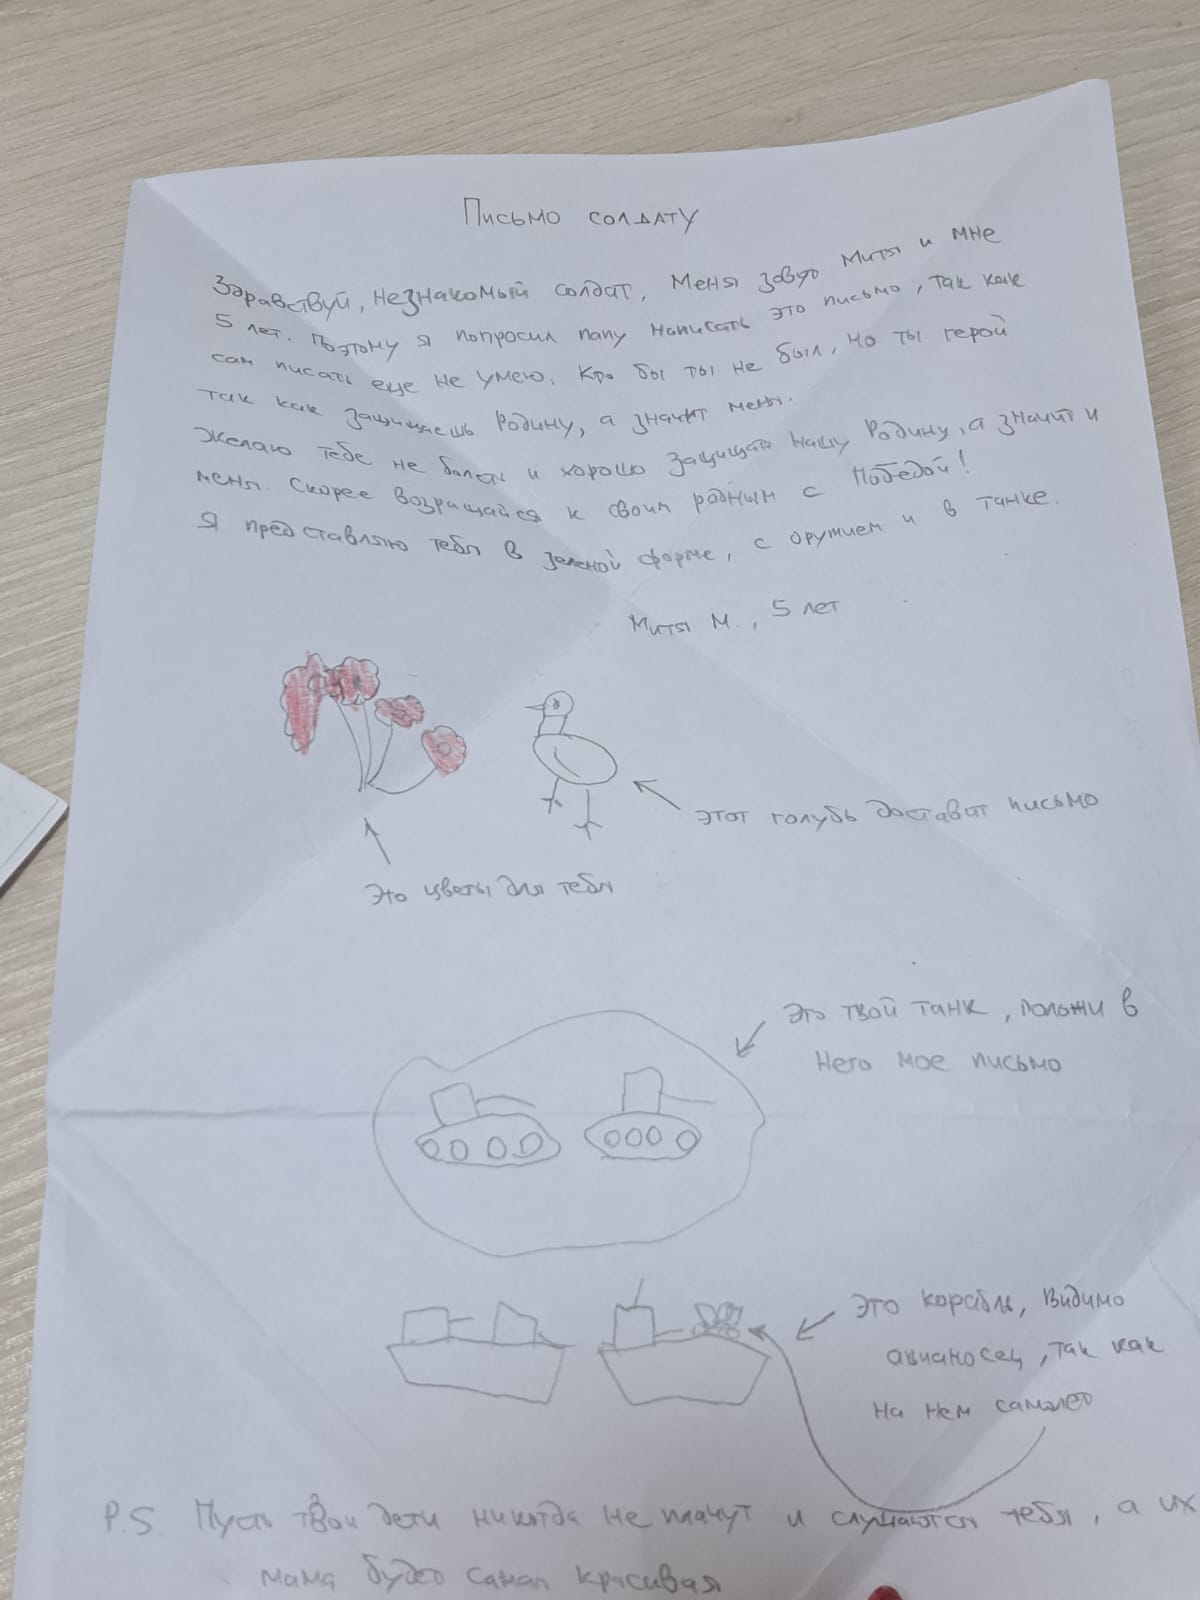 Письмо солдату
Здравствуй, незнакомый солдат, меня зовут Митя и мне
5 лет. Поэтому я попросил папу написать это письмо, так как
сам писать еще не умею. Кто бы ты не был, но ты герой
так как защищаешь Родину, а значит меня.
Желаю тебе не болеть и хорошо защищать нашу Родину, а значит и
меня. Скорее возращайся к своим родным с Победой!
Я представляю тебя в зеленой форме, с оружием и в танке.
Митя М., 5 лет
Этот голубь доставит письмо
Это цветы для тебя
Это твой танк, положи в
него мое письмо
Это корабль, видимо
авианосец, так как
на нем самолет
P.S. Пусть твои дети никогда не плачут и слушаются тебя, а их
мама будет самая красивая